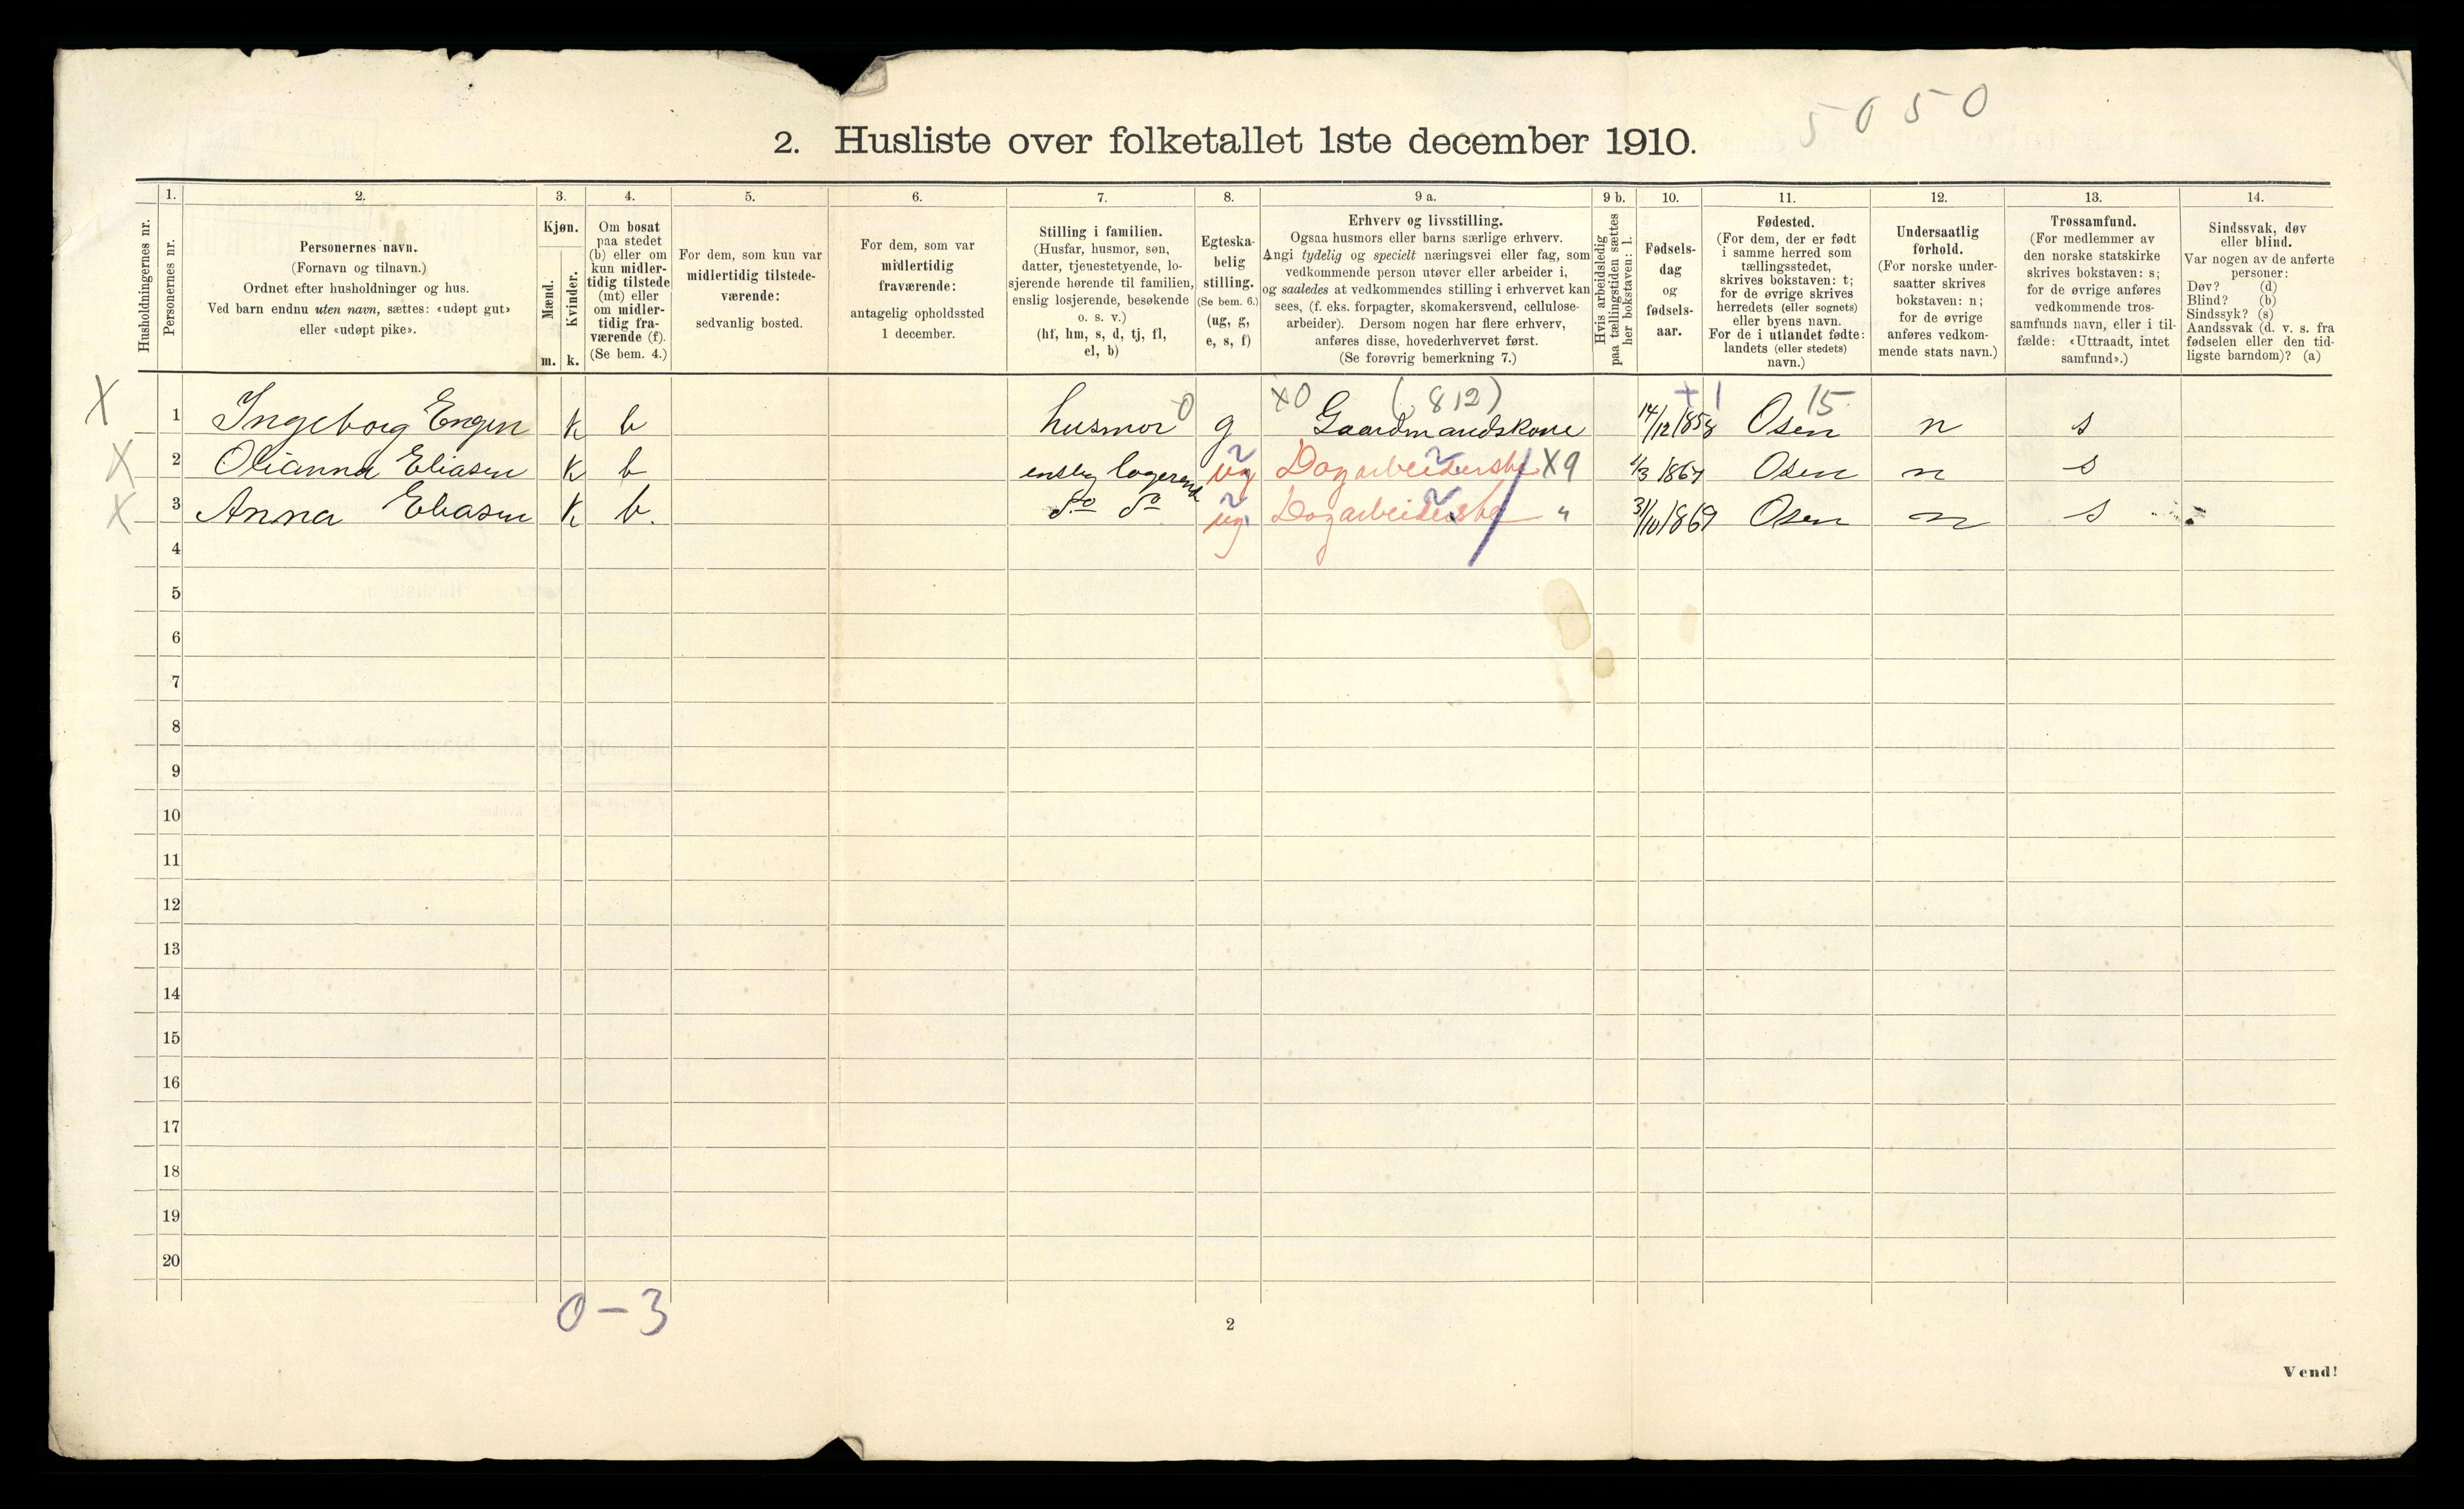 5050
2. Husliste over folketallet 1ste december 1910.
Husholdningernes nr.
1.
Personernes nr.
2.
Personernes navn.
(Fornavn og tilnavn.)
Ordnet efter husholdninger og hus.
Ved barn endnu uten navn, sættes: «udøpt gut»
eller «udøpt pike».
3.
Kjøn.
Mænd.
Kvinder.
m. k.
4.
Om bosat
paa stedet
(b) eller om
kun midler-
tidig tilstede
(mt) eller
om midler-
tidig fra-
værende (f).
(Se bem. 4.)
5.
For dem, som kun var
midlertidig tilstede-
værende:
sedvanlig bosted.
6.
For dem, som var
midlertidig
fraværende:
antagelig opholdssted
1 december.
7.
Stilling i familien.
(Husfar, husmor, søn,
datter, tjenestetyende, lo-
sjerende hørende til familien,
enslig losjerende, besøkende
o. s. v.)
(hf, hm, s, d, tj, fl,
el, b)
8.
Egteska-
belig
stilling.
(Se bem. 6.)
(ug, g,
e, s, f)
9 a.
Erhverv og livsstilling.
Ogsaa husmors eller barns særlige erhverv.
Angi tydelig og specielt næringsvei eller fag, som
vedkommende person utøver eller arbeider i,
og saaledes at vedkommendes stilling i erhvervet kan
sees, (f. eks. forpagter, skomakersvend, cellulose-
arbeider). Dersom nogen har flere erhverv,
anføres disse, hovederhvervet først.
(Se forøvrig bemerkning 7.)
9 b.
Hvis arbeidsledig
paa tællingstiden sættes
her bokstaven: l.
10.
Fødsels-
dag
og
fødsels-
aar.
11.
Fødested.
(For dem, der er født
i samme herred som
tællingsstedet,
skrives bokstaven: t;
for de øvrige skrives
herredets (eller sognets)
eller byens navn.
For de i utlandet fødte:
landets (eller stedets)
navn.)
12.
Undersaatlig
forhold.
(For norske under-
saatter skrives
bokstaven: n;
for de øvrige
anføres vedkom-
mende stats navn.)
13.
Trossamfund.
(For medlemmer av
den norske statskirke
skrives bokstaven: s;
for de øvrige anføres
vedkommende tros-
samfunds navn, eller i til-
fælde: «Uttraadt, intet
samfund».)
14.
Sindssvak, døv
eller blind.
Var nogen av de anførte
personer:
Døv? (d)
Blind? (b)
Sindssyk? (s)
Aandssvak (d. v. s. fra
fødselen eller den tid-
ligste barndom)? (a)
X0 (812) +1 15
X 1 Ingeborg Engen k b husmor 0 g Gaardmandskone 14/12 1858 Osen n s
X 2 Olianna Eliasen k b enslig logerende ug Dagarbeiderske X9 1/3 1867 Osen n s
X 3 Anna Eliasen k b. do do ug Dagarbeiderske " 31/10 1869 Osen n s
4
5
6
7
8
9
10
11
12
13
14
15
16
17
18
19
20
0-3
2
Vend!